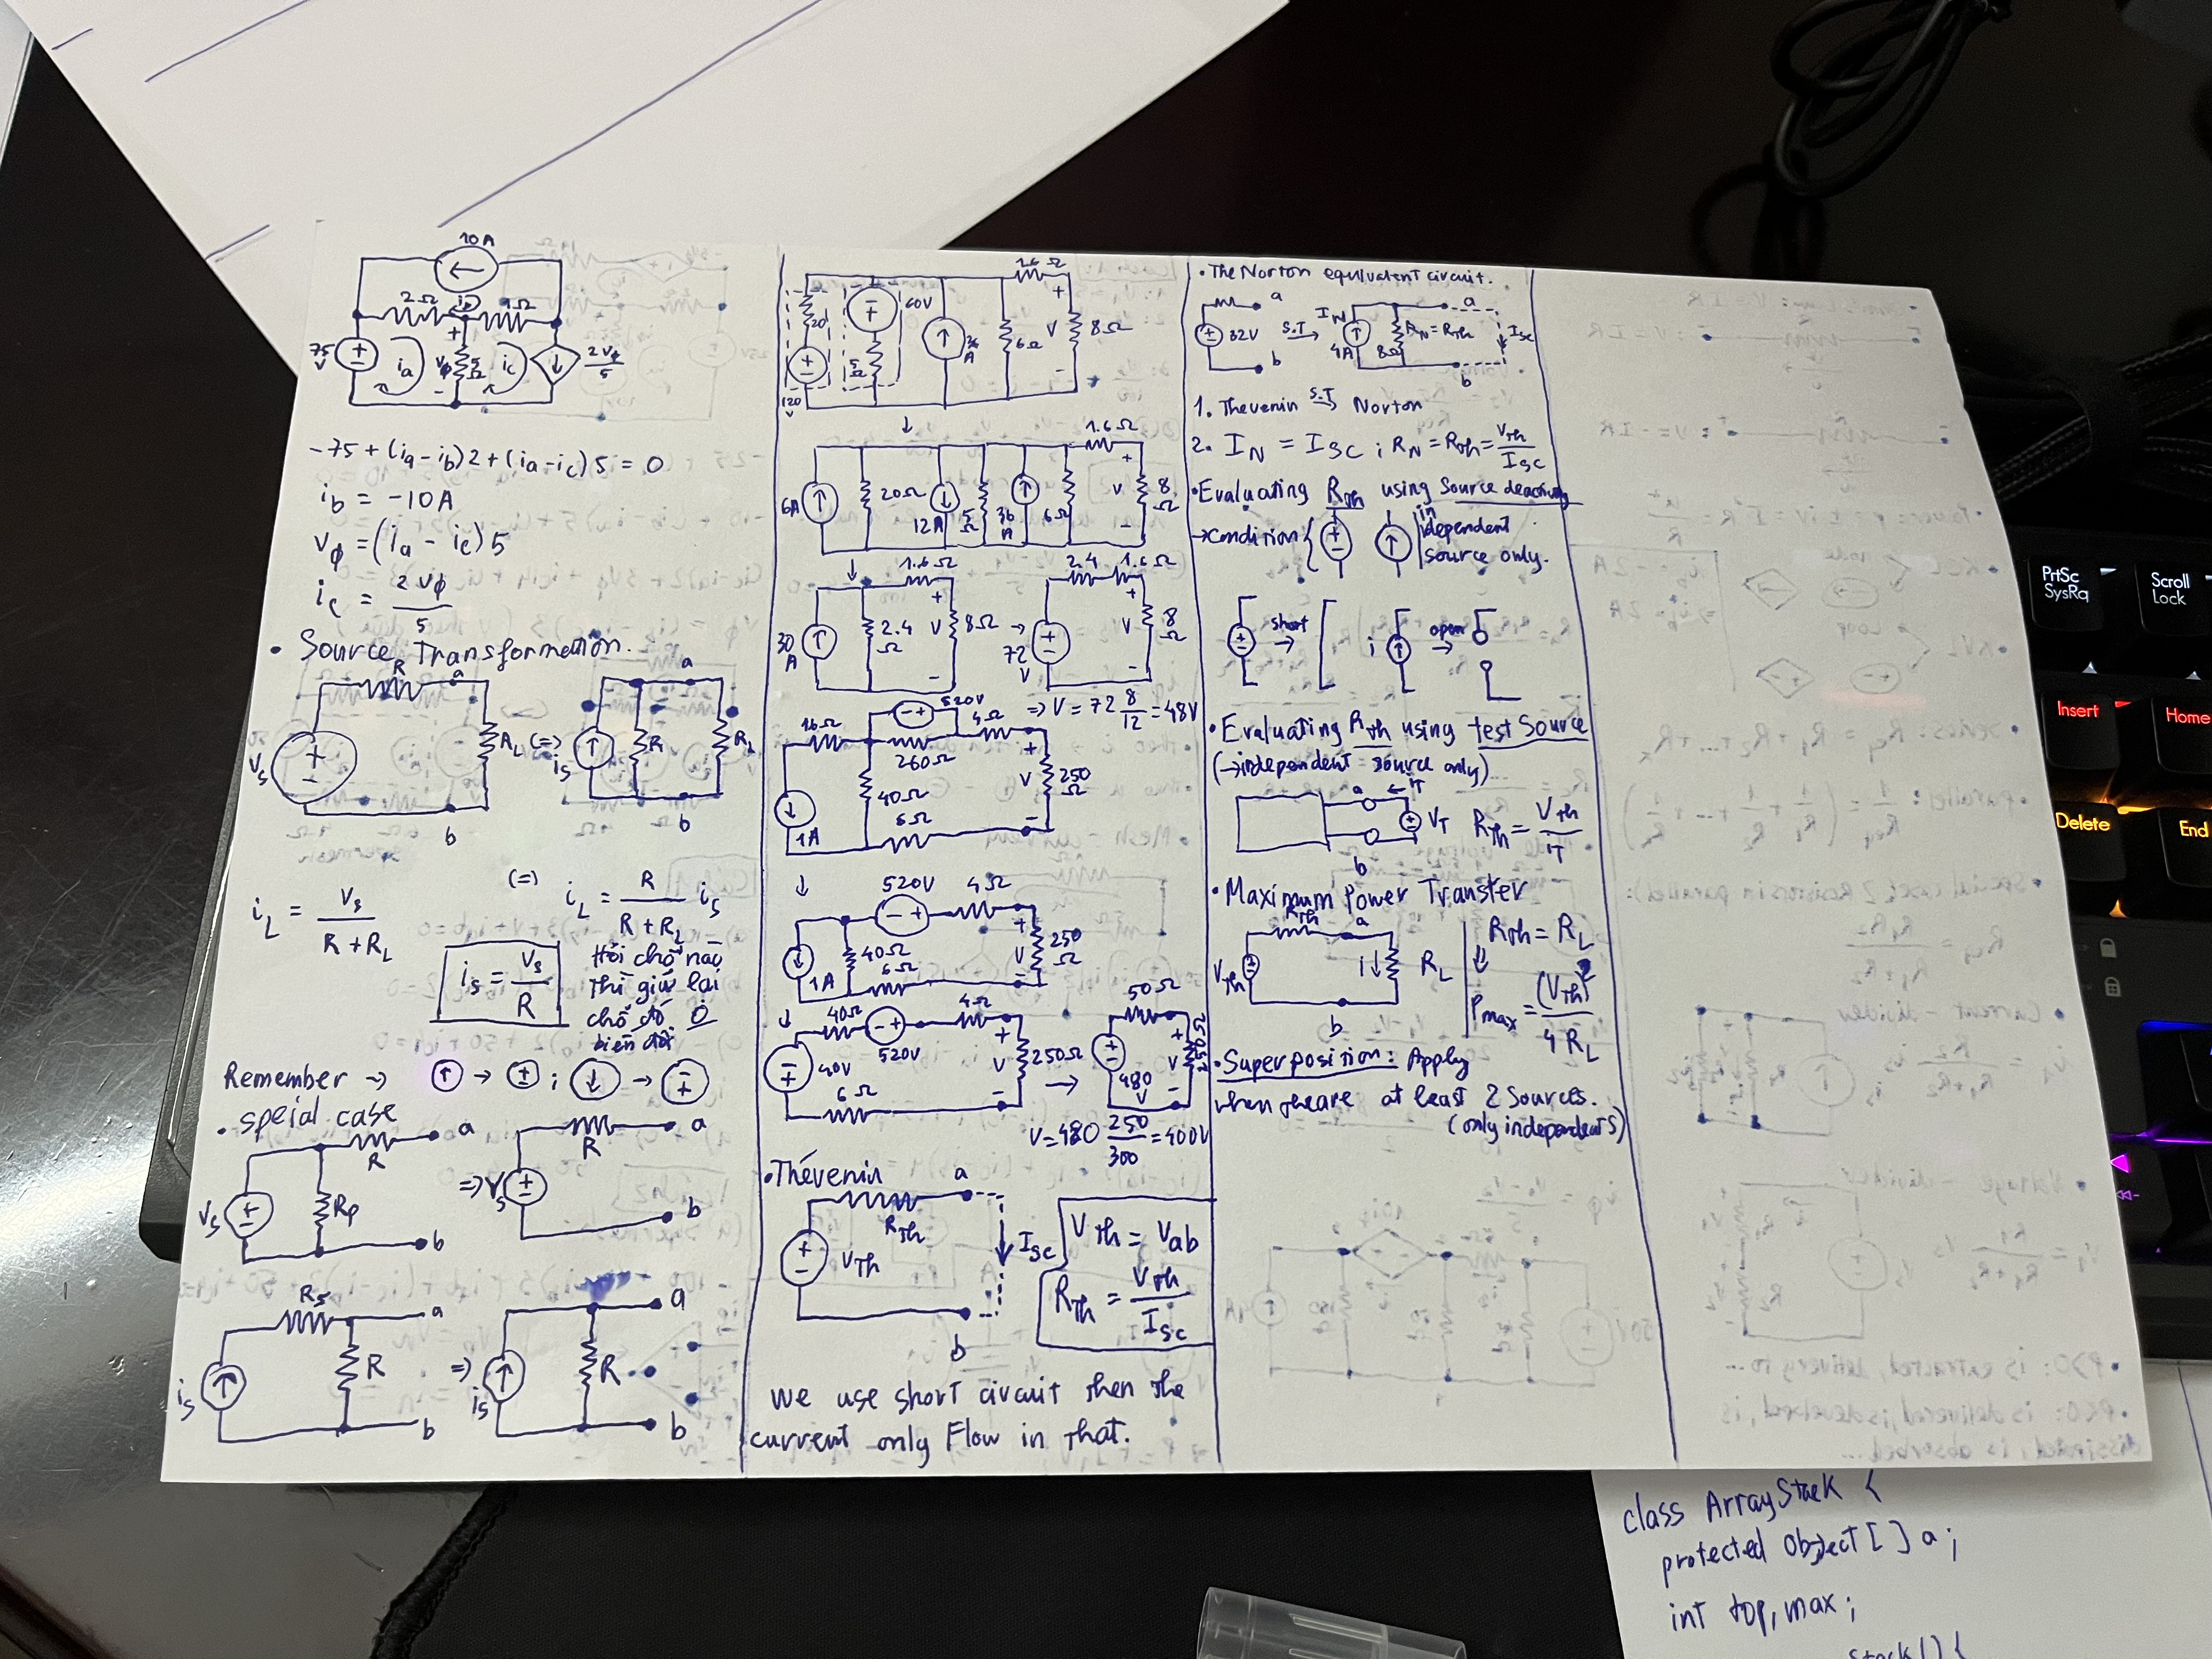 10A
2Ω
ib
1Ω
75
V
+
-
ia
+
Vφ
-
5
Ω
ic
2Vφ
5
-75+(ia-ib)2+(ia-ic)5=0
ib = -10A
Vφ = (ia - ic)5
ic = 2Vφ
5
• Source Transformation.
R
a
Vs
+
-
RL
b
(=)
is
R
a
RL
b
iL = Vs
R+RL
(=)
iL = R is
R+RL
is = Vs
R
Hỏi chỗ nào
thì giữ lại
chỗ đó, ko
biến đổi
Remember →
↑ → ± ; ↓ → ∓
• speial case
Vs
+
-
R
a
Rp
b
=>
Vs
R
a
b
Rs
a
is
R
b
=>
is
a
R
b
1.6Ω
20
120
V
60V
5
Ω
36
A
6Ω
+
V
-
8Ω
↓
1.6Ω
6A
20Ω
12A
5
Ω
36
A
6Ω
+
V
-
8
Ω
↓
1.6Ω
30
A
2.4
Ω
+
V
-
8Ω
→
2.4
1.6Ω
72
V
+
V
-
8
Ω
=> V = 72 8 = 48V
12
520V
- +
16Ω
4Ω
260Ω
40Ω
6Ω
1A
+
V
-
250
Ω
↓
520V
- +
4Ω
1A
40Ω
6Ω
+
V
-
250
Ω
↓
40Ω
- +
520V
4Ω
40V
6Ω
+
V
-
250Ω
→
50Ω
480
V
+
V
-
250Ω
V=480 250 = 400V
300
• Thévenin
a
RTh
VTh
+
-
Isc
b
VTh = Vab
RTh = VTh
Isc
We use short circuit then the
current only Flow in that.
• The Norton equivalent circuit.
a
32V
b
S.T
→
IN
4A
8Ω
RN = RTh
a
Isc
b
1. Thevenin S.T → Norton
2. IN = ISC ; RN = RTh = VTh
ISC
• Evaluating RTh using Source deactiving
→ condition {
in
dependent
source only.
short
→
i
open
→
• Evaluating RTh using test Source
(→ independent source only)
a
← iT
VT
b
RTh = VTh
iT
• Maximum Power Transter
RTh
a
VTh
i↓
RL
b
RTh = RL
⇓
Pmax = (VTh)²
4RL
• Superposition: Apply
when theare at least 2 sources.
(only independents)
PrtSc
SysRq
Scroll
Lock
Insert
Home
Delete
End
class ArrayStack {
protected Object[] a;
int top, max;